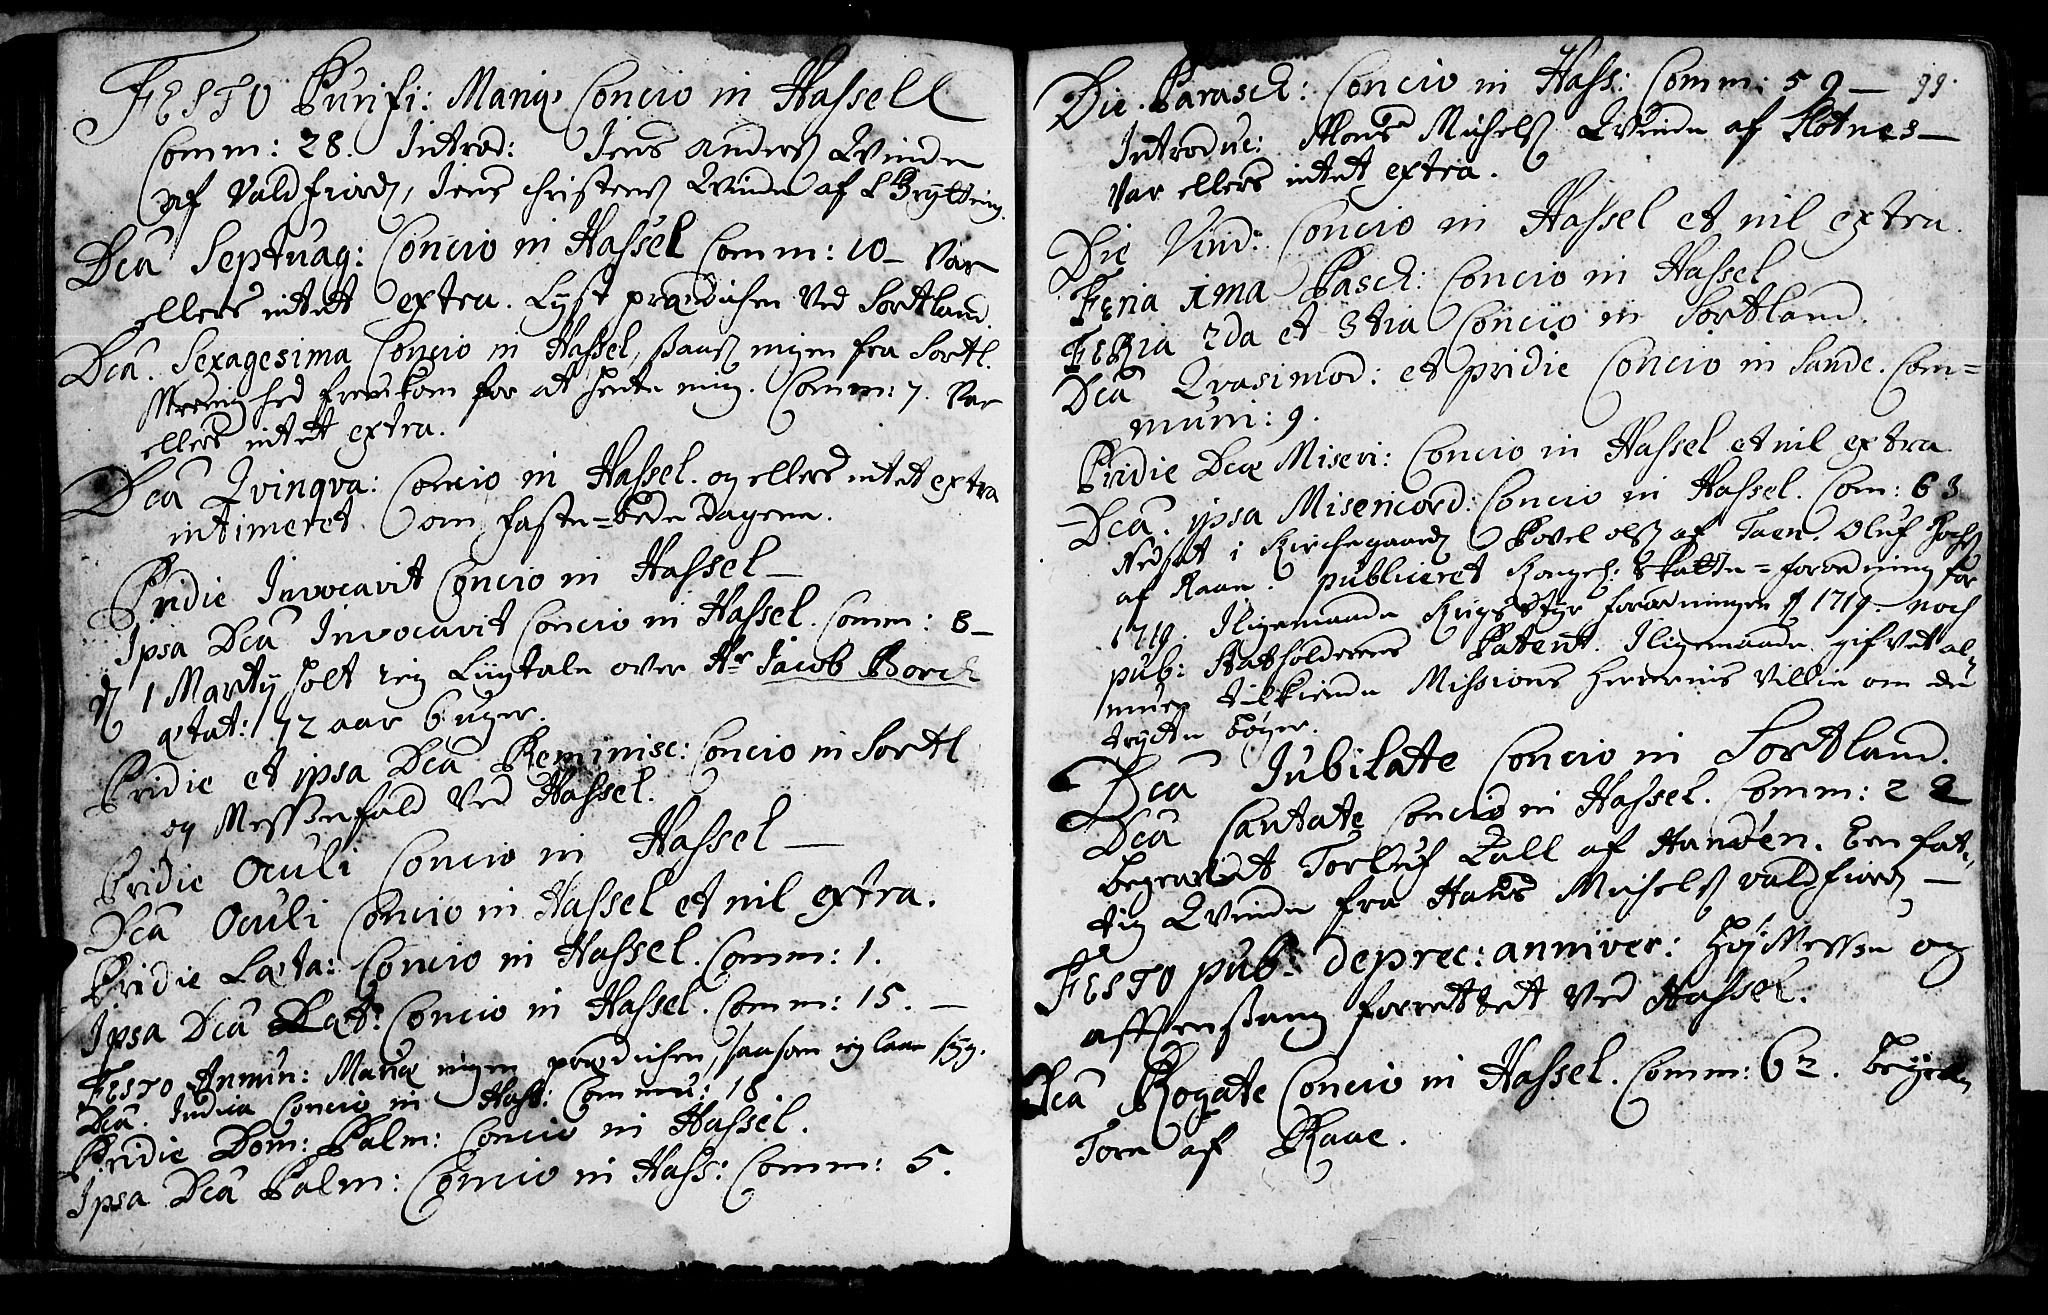 FESTO Purifi: Mariæ Concio in Hassell
Comm: 28. Introd: Jens Anders Qvinde
af Valdfiord, Jens Christens Qvinde af
Dca Septuag: Concio in Hassel Comm: 10 - Var
ellers intet extra. Lyst prædichen ved Sortland.
Dca. Sexagesima Concio in Hassel, saas ingen fra Sortl.
Menighed fremkom for at hente mig. Comm: 7. Var
ellers intet extra.
Dca Qvinqva: Concio in Hassel. og ellers intet extra
intimeret om faste-bede dagene.
Pridie Invocavit Concio in Hassel -
Ipsa Dca Invocavit Concio in Hassel. Comm: 8 -
d 1 Martij holt ieg Liigtale over Hr Jacob Borch
ætat: 72 aar 6 uger.
Pridie et ipsa Dca Reminisc: Concio in Sortl
og Messefald ved Hassel.
Pridie Oculi Concio in Hassel -
Dca Oculi Concio in Hassel et nil extra.
Pridie Læta: Concio in Hassel. Comm: 1.
Ipsa Dca Læt: Concio in Hassel. Comm: 15. -
FESTO Annun: Mariæ ingen prædichen, saasom ieg laae syg.
Dca. Judica Concio in Hass: Commu: 18
Pridie Dom: Palm: Concio in Hassel.
Ipsa Dca Palm: Concio in Hass: Comm: 5.
99.
Die Parasch: Concio in Hass: Comm: 59 -
Introduc: Mons Michels Qvinde af -
Var ellers intet extra.
Die Virid: Concio in Hassel et nil extra.
Feria 1ma Pasch: Concio in Hassel
FERia 2da et 3tia Concio in Sortland.
Dca Qvasimod: et pridie Concio in Sande. Com=
muni: 9.
Pridie Dcæ Miseri: Concio in Hassel et nil extra
Dca. ypsa Misericord: Concio in Hassel. Com: 63
Nedsat i Kirchegaard Povel ols af Taen. Oluf
af Raae. publiceret Kongel: Skatte=forordning for
1719. Iligemaade Krigsstyr forordningen d 1719. noch
pub: Statholderens Patent. Iligemaade gifvet al,
muen tilkiende Missions Herrernis Villie om de
trychte bøger.
Dca Jubilate Concio in Sortland.
Dca Cantate Concio in Hassel. Comm: 22
begravet Torleuf Zall af Handen. Een fat,
tig Qvinde fra Hans Michels valdfiord -
FESTO pub: deprec: anniver: HøyMesse og
afftensang forrettet ved Hassel.
Dca Rogate Concio in Hassel. Comm: 62.
Tore af Raae.